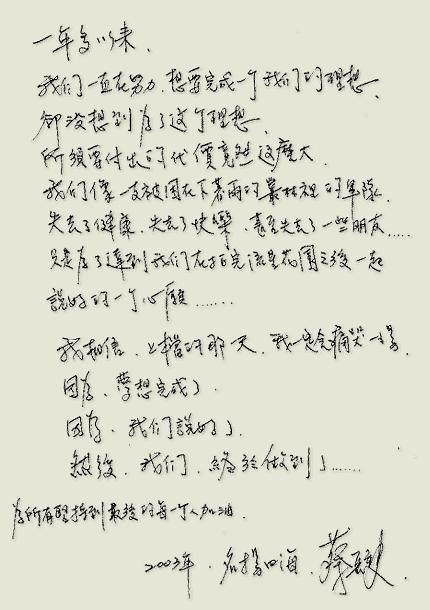 一年多以来、
我们一直在努力、想要完成一个我们的理想、
却没想到为了这个理想、
所须要付出的代價竟然这麼大、
我们像一支被困在下著雨的叢林裡的軍隊、
失去了健康、失去了快樂、甚至失去了一些朋友……
只是為了達到我们在拍完流星花園之後一起
說好的一个心願……
我相信、上檔的那一天、我一定会痛哭一場、
因為、夢想完成了、
因為、我们說好了、
然後、我们、終於做到了……
為所有堅持到最後的每一个人加油、
2003年、名揚四海、蔡